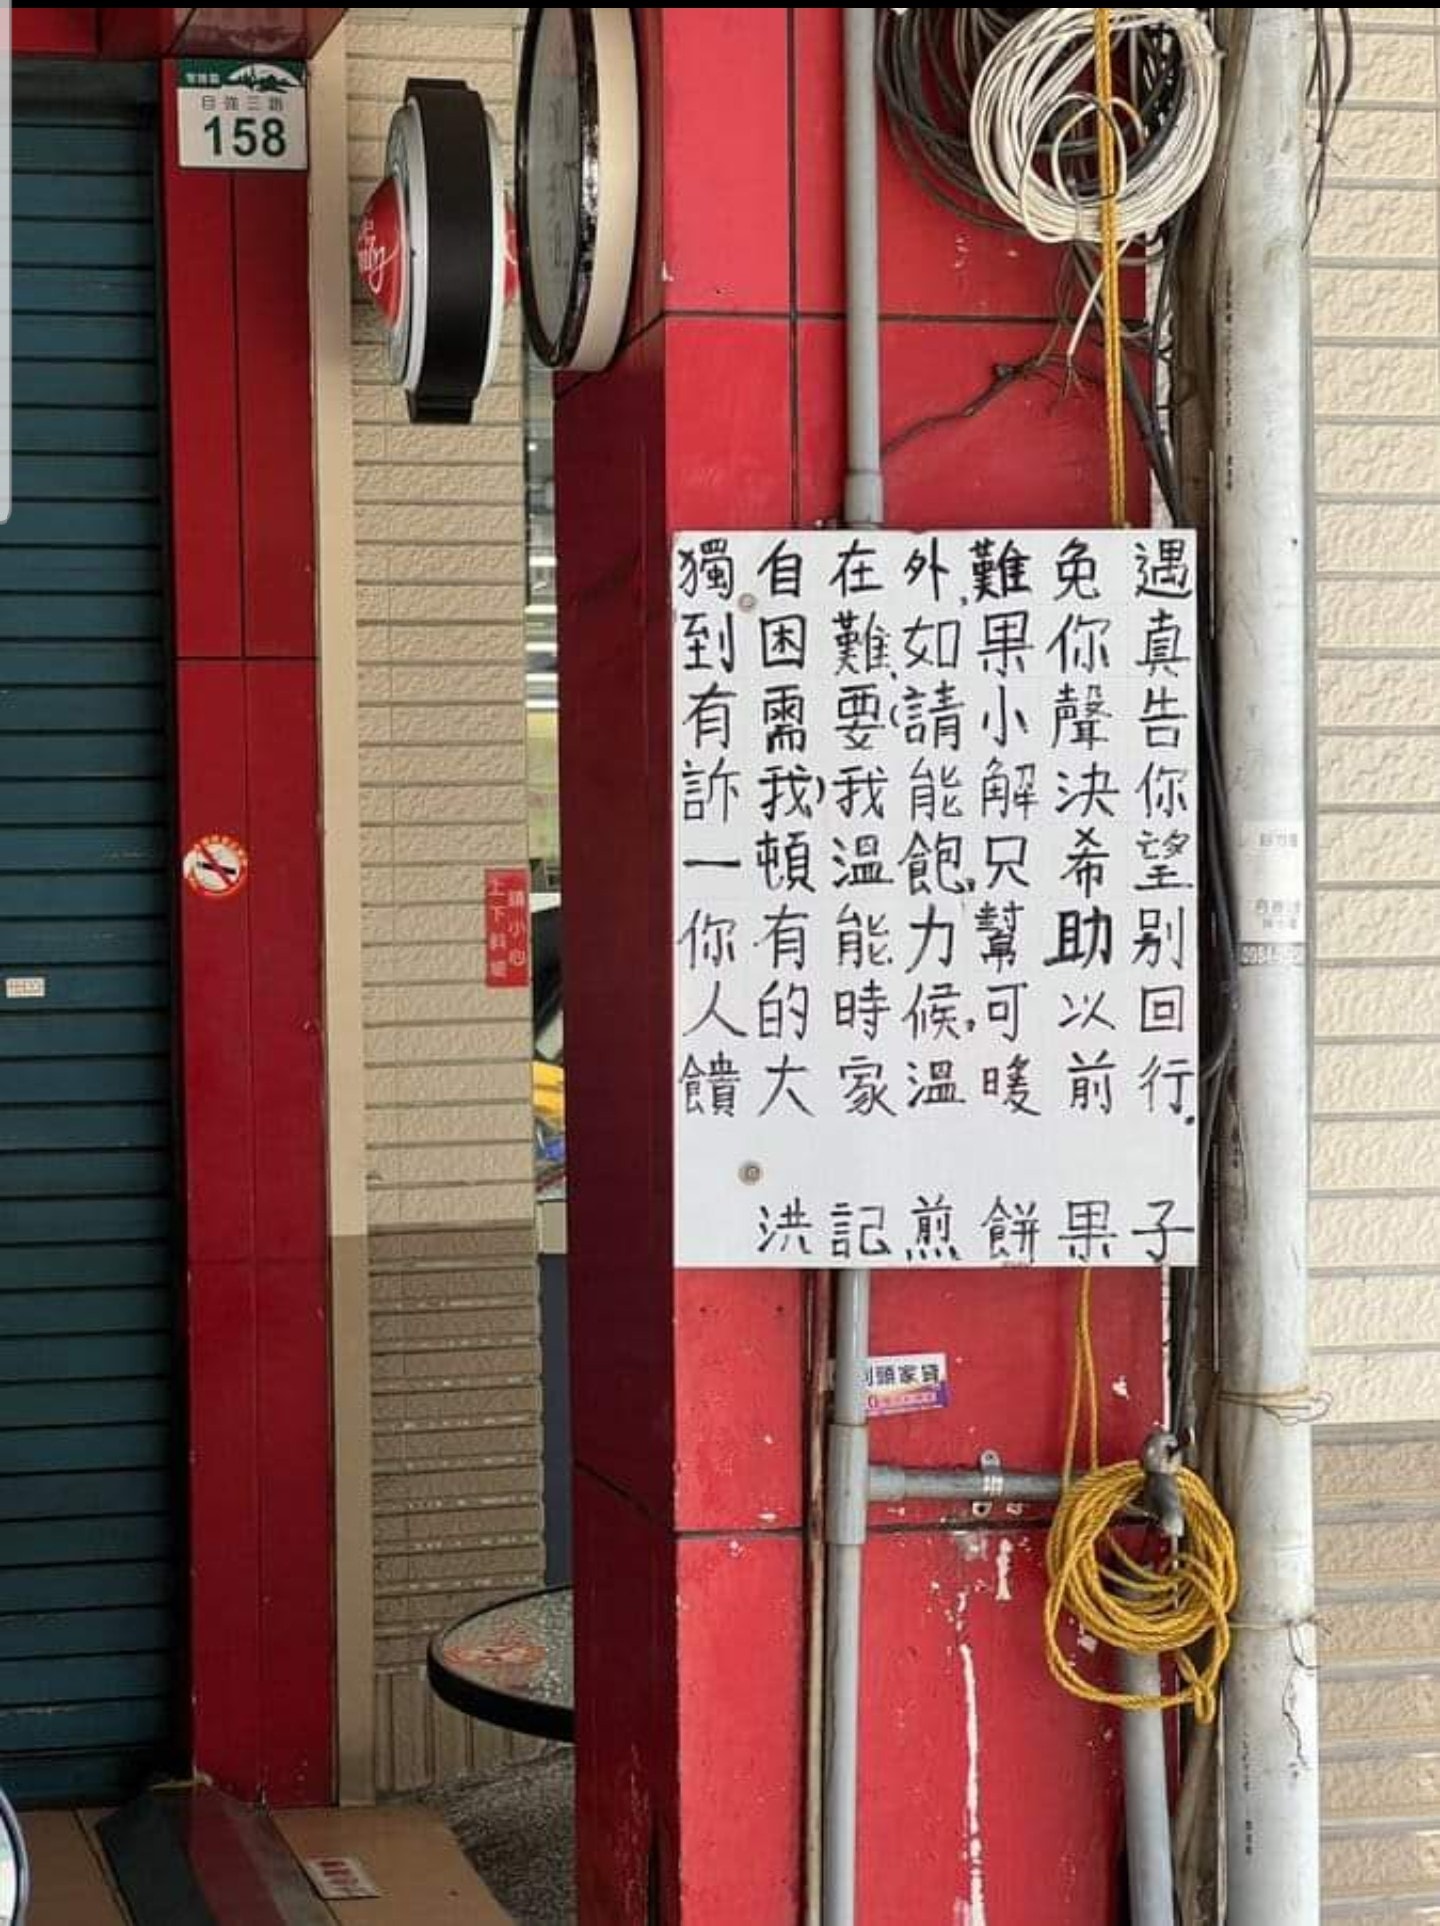 自強三路
158
獨自在外,難免遇
到困難、如果你真
有需要(請小聲告
訴我)我能解決你
一頓溫飽,只希望
你有能力幫助别
人的時候,可以回
饋大家溫暖前行.
洪記煎餅果子
請小心
上下斜坡
頭家貸